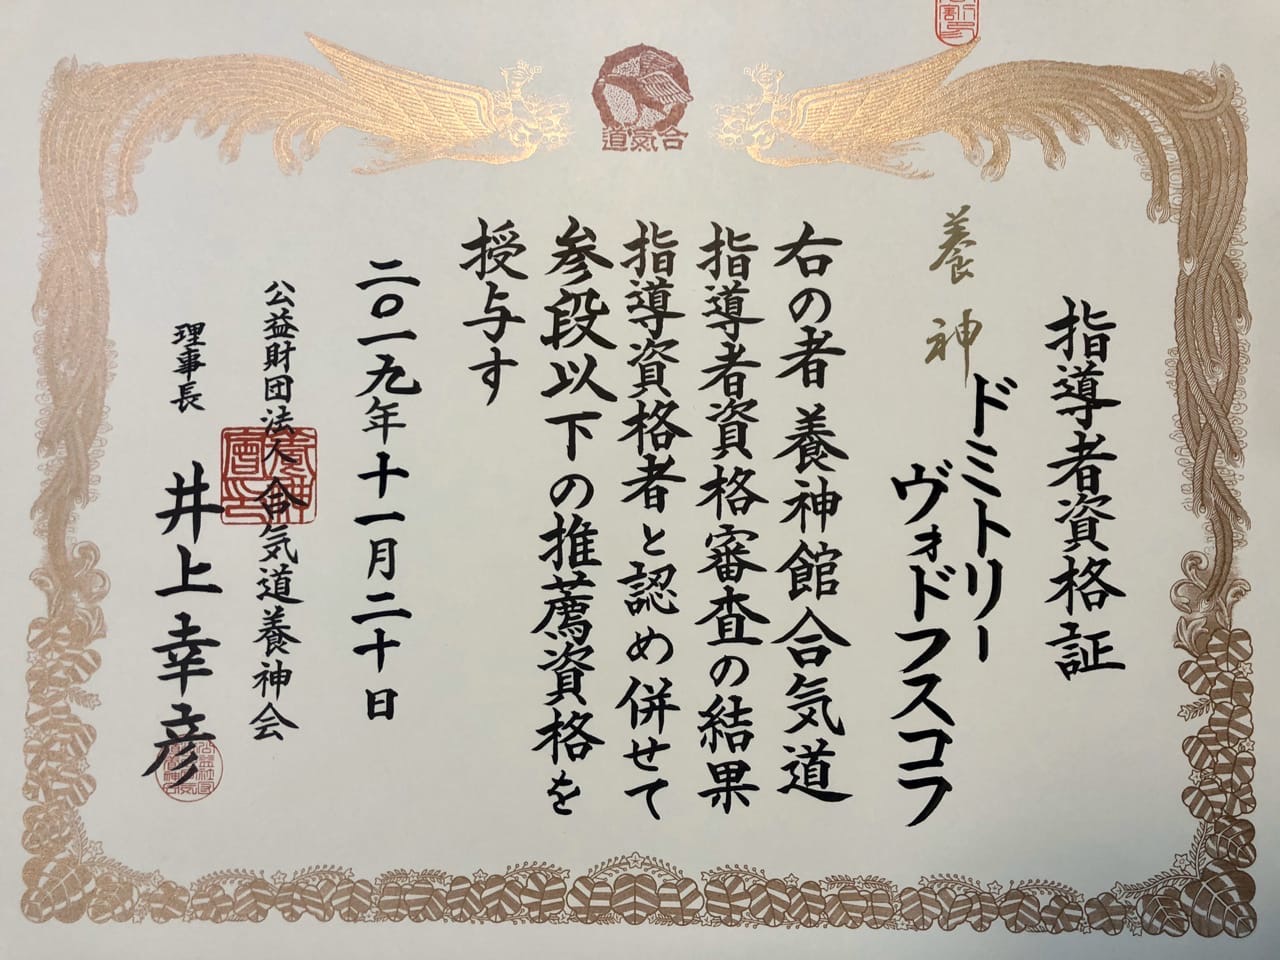 合氣道
指導者資格証
養神
ドミトリー
ヴォドフスコフ
右の者養神館合気道
指導者資格審査の結果
指導資格者と認め併せて
参段以下の推薦資格を
授与す
二〇一九年十一月二十日
公益財団法人合気道養神会
理事長 井上幸彦